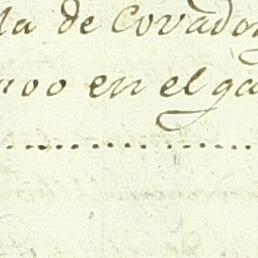 la de Covadon
noo en el ga